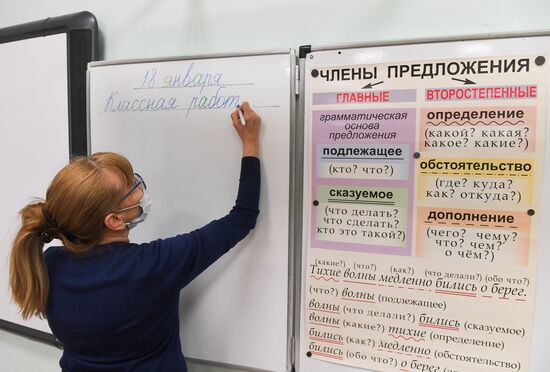 18 января
Классная работ
ЧЛЕНЫ ПРЕДЛОЖЕНИЯ
ГЛАВНЫЕ
грамматическая
основа
предложения
подлежащее
(кто? что?)
сказуемое
(что делать?
что сделать?
кто это такой?)
ВТОРОСТЕПЕННЫЕ
определение
(какой? какая?
какое? какие?)
обстоятельство
(где? куда?
как? откуда?)
дополнение
(чего? чему?
что? чем?
о чём?)
(какие?) (что?) (как?) (что делали?) (обо что?)
Тихие волны медленно бились о берег.
(что?) волны (подлежащее)
волны (что делали?) бились (сказуемое)
волны (какие?) тихие (определение)
бились (как?) медленно (обстоятельство)
бились (обо что?) о берег